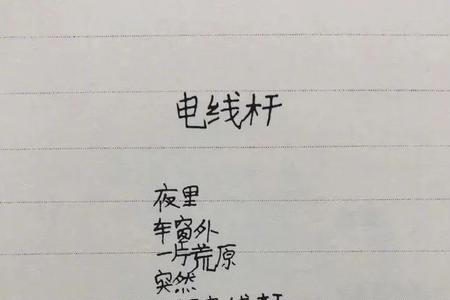 电线杆
夜里
车窗外
一片荒原
突然
电线杆